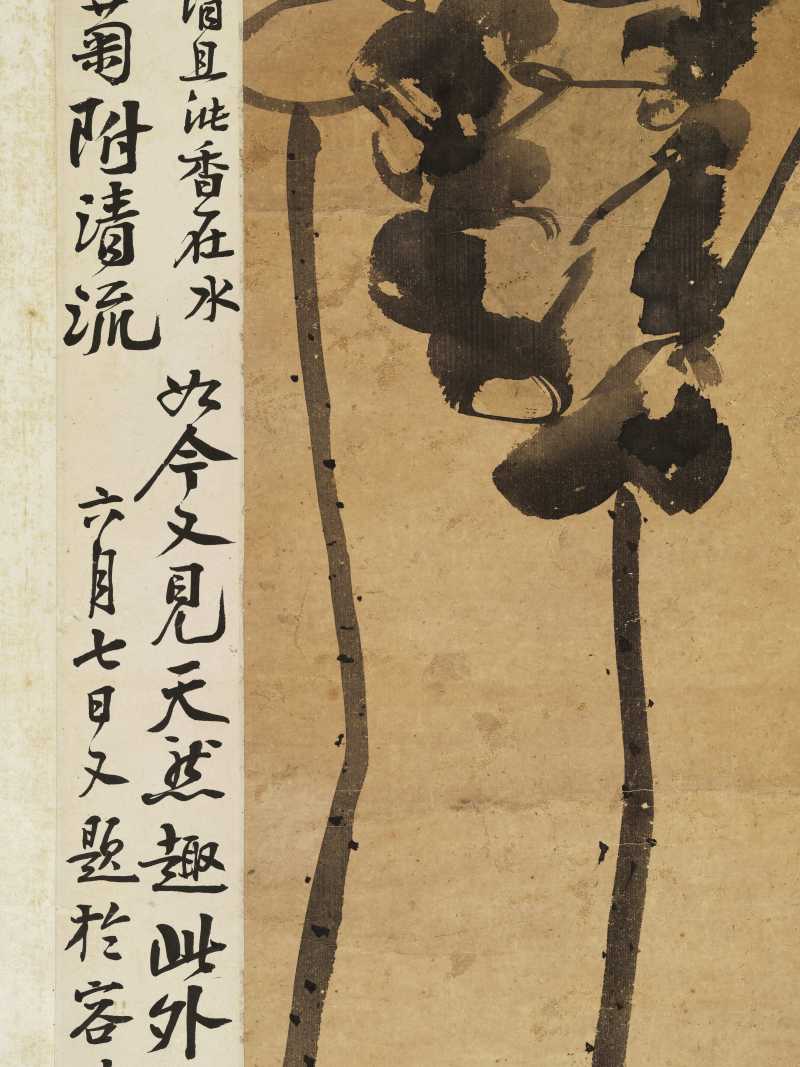 且泚香在水如今又見天然趣此外
菊附清流六月七日又題於容